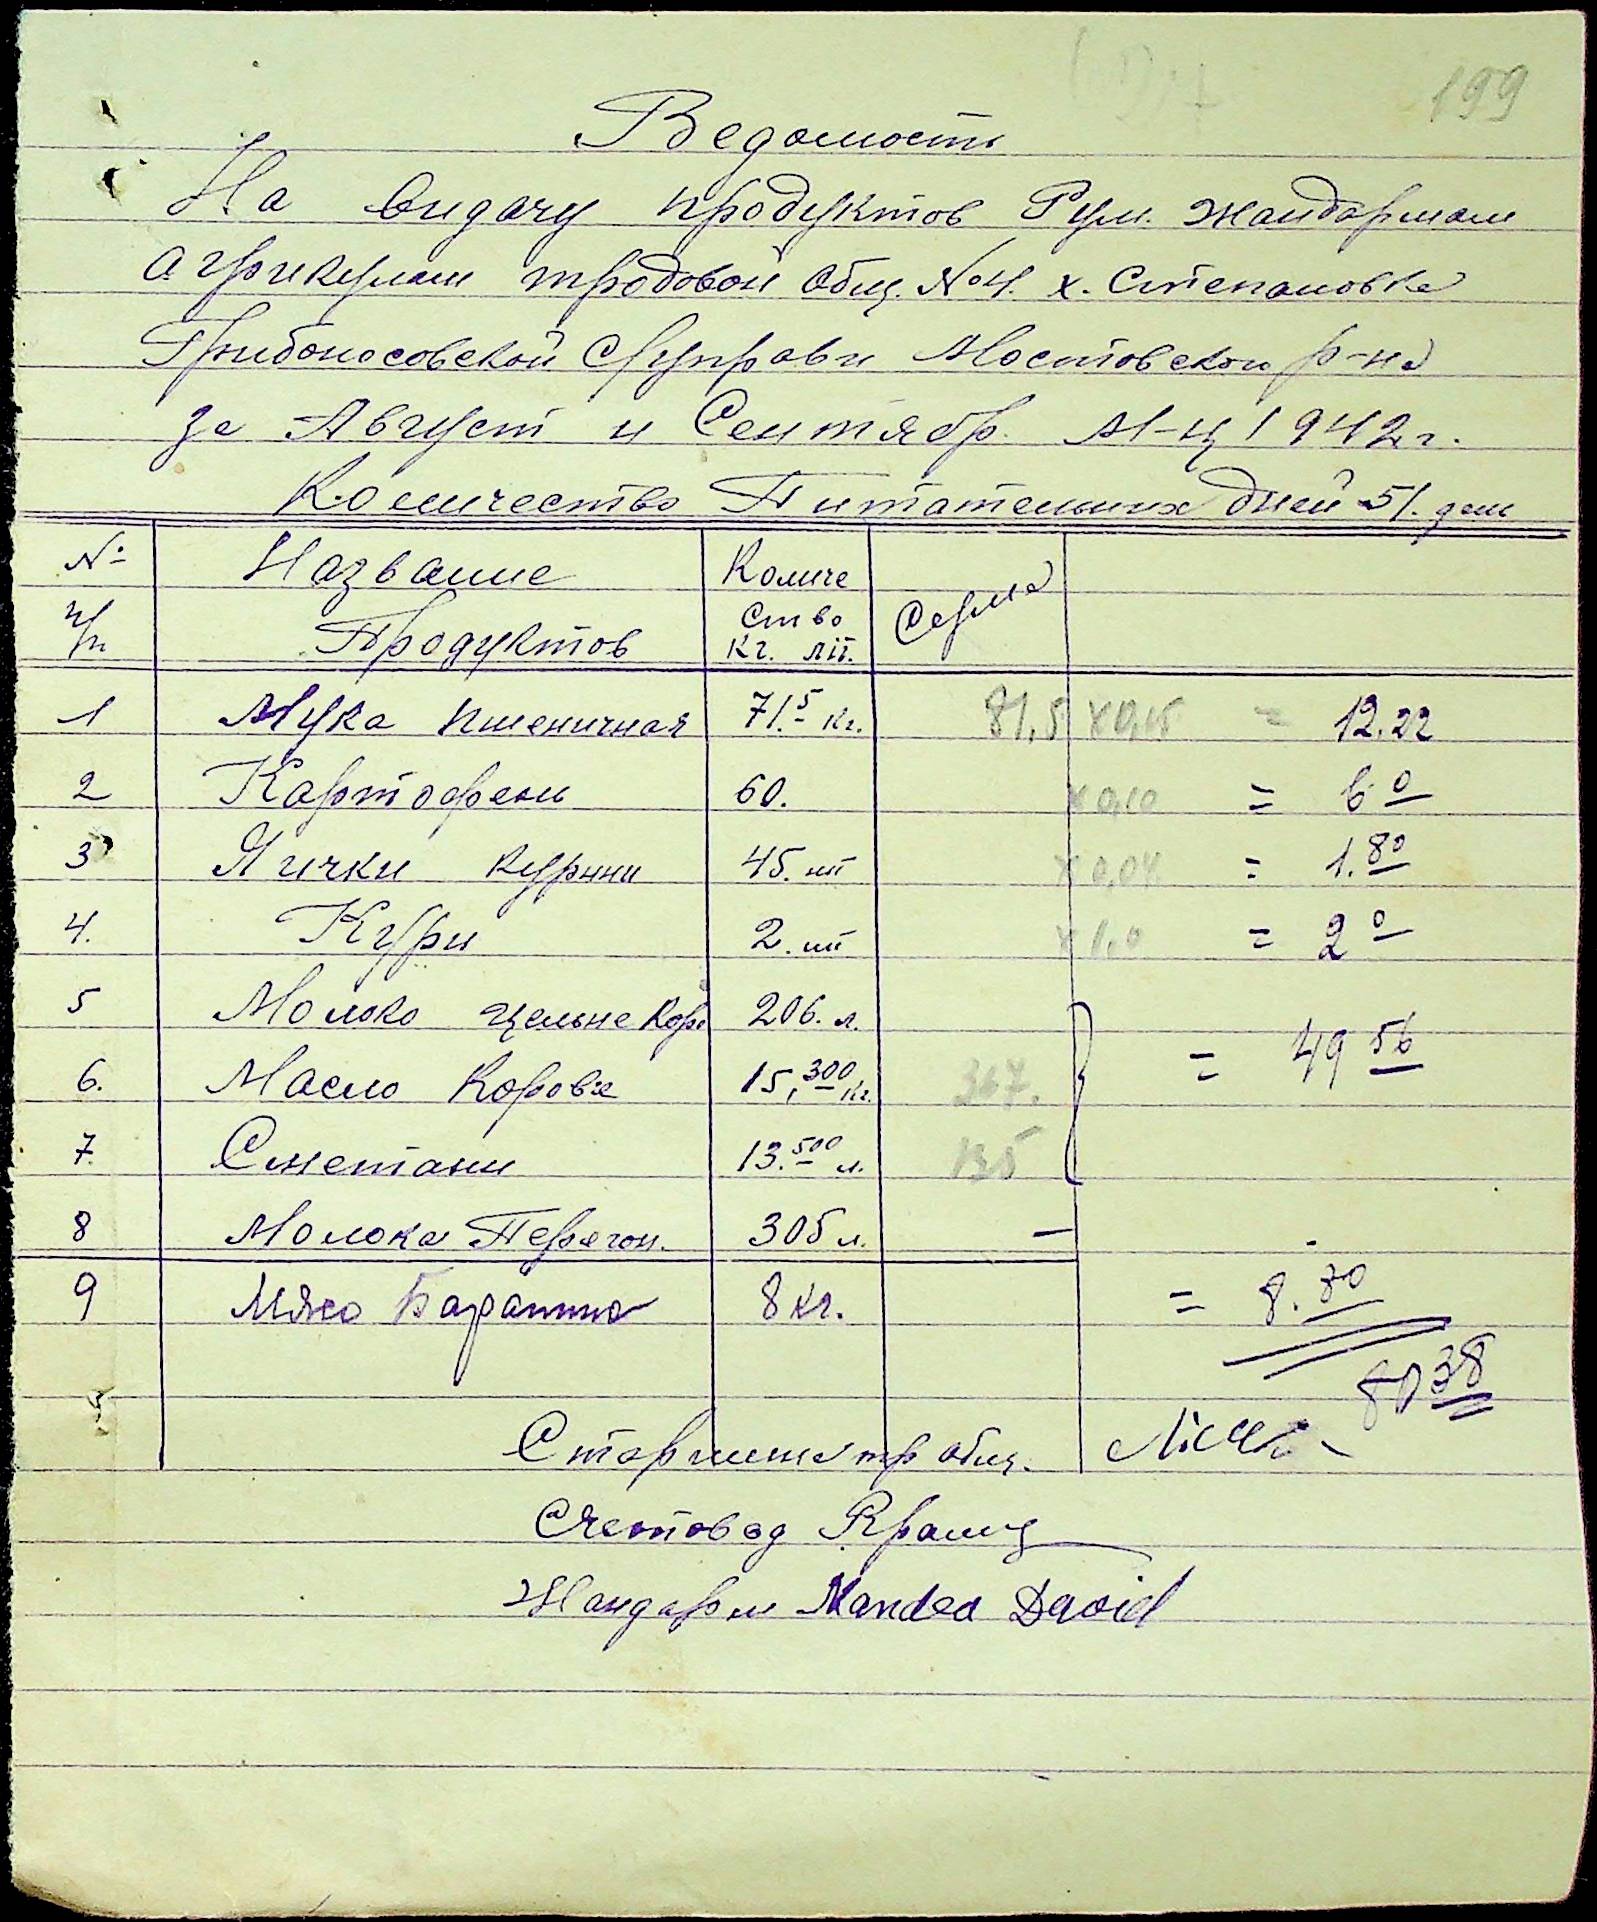 199
Ведомость
На видачу продуктов Рум. жандармам
агрикулам трудовой общ. №4. х. Степановка
Грибоносовской с/управи Мостовского р-на
за Август и Сентябр. М-ц 1942 г.
Количество Питательних дней 51. ден
№ ч/п Название Продуктов Количество кг. лит. Сумма
1 Мука пшеничная 71.5 кг. 81,5 х 0,15 = 12.22
2 Картофень 60. х 0,10 = 6 0
3 Яички курини 45. шт х 0,04 = 1.80
4. Кури 2. шт х 1,0 = 2 0
5 Молоко цельне Коро 206. л.
6. Масло Коровье 15,300 кг. 367. = 49 56
7. Сметани 13.500 л. 135
8 Молока Перегон. 305 л. —
9 Мясо Баранина 8 кг. = 8.80
80 38
Старшина тр общ.
Счетовод
Жандарм Mandea David